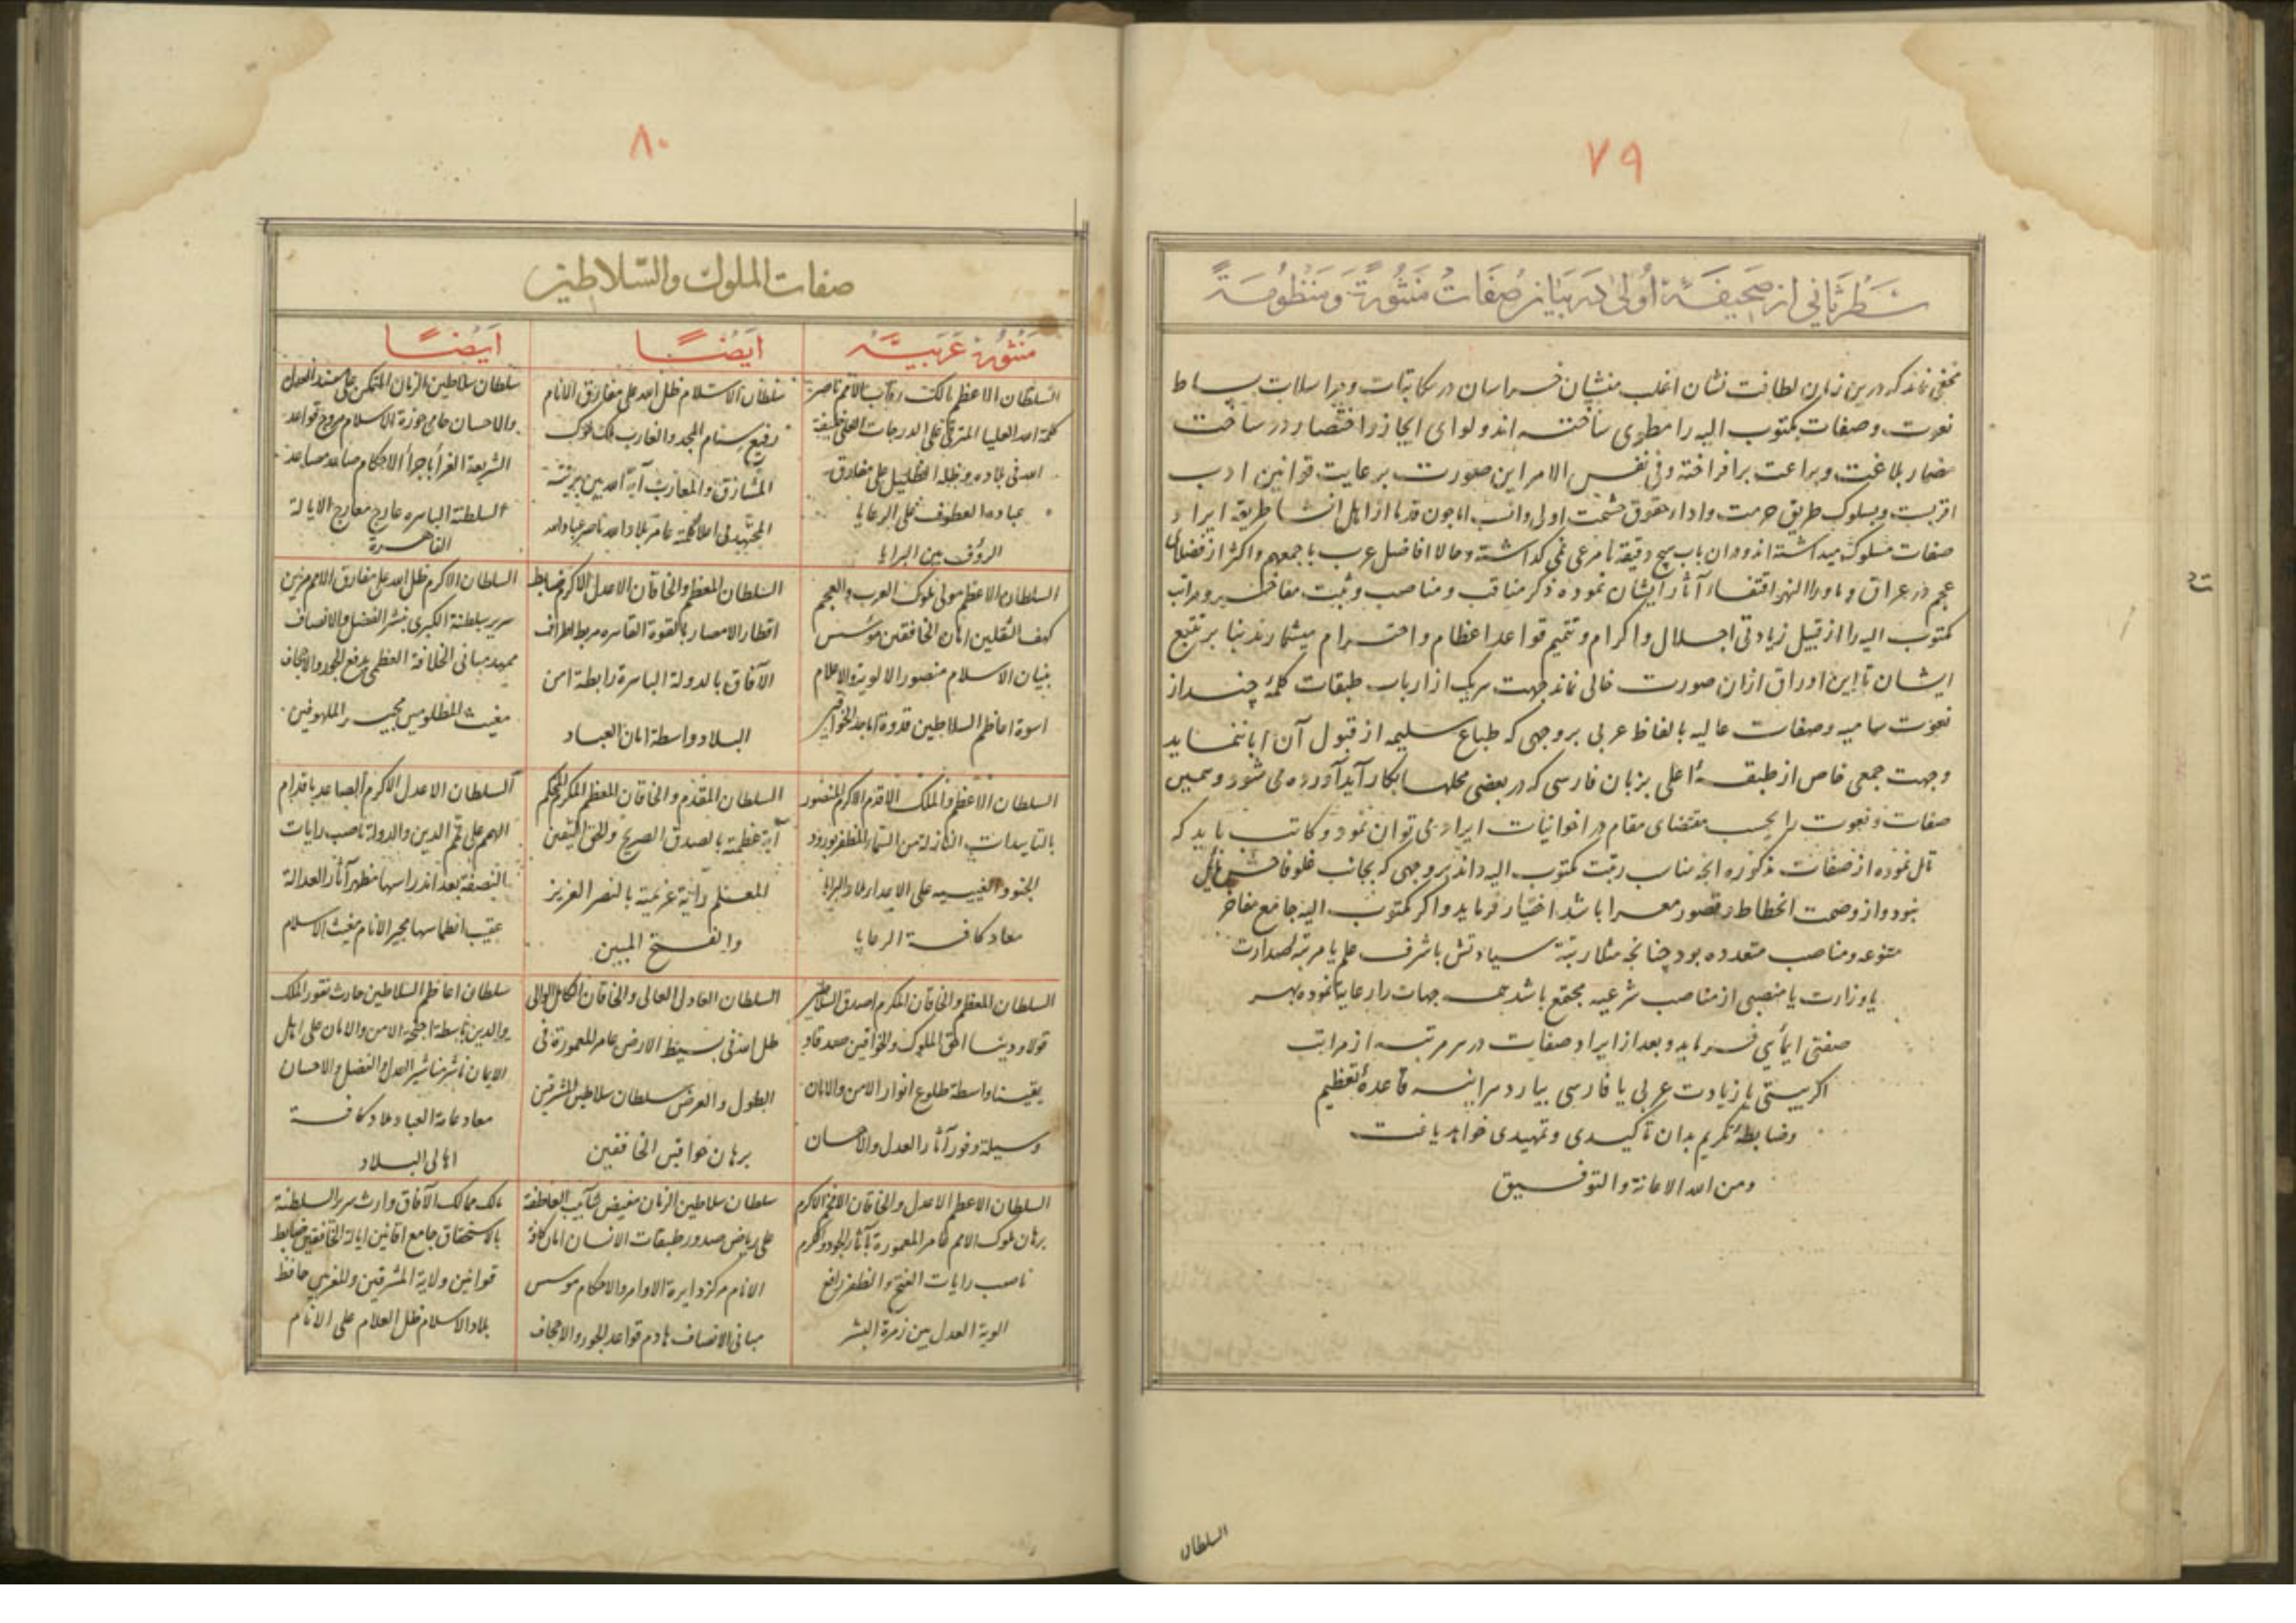 ٧٩
سطر ثانی از صحیفهٔ اولی در بیان صفات منثورة و منظومة
مخفی نماند که درین زمان لطافت نشان اغلب منشیان خراسان در مکاتبات و مراسلات بساط
نعوت و صفات مکتوب الیه را مطوی ساخته اند و لوای ایجاز و اختصار در ساخت
مضمار بلاغت و براعت برافراخته و فی نفس الامر این صورت برعایت قوانین ادب
اقربست و بسلوک طریق حرمت و ادا حقوق حشمت اولی و انسب اما چون قدما از اهل انشا طریقه ایراد
صفات مسلوک میداشته اند و در ان باب هیچ دقیقه نامرعی نمی کذاشته و حالا افاضل عرب باجمعهم و اکثر از فضلای
عجم در عراق و ماوراالنهر اقتفاء آثار ایشان نموده ذکر مناقب و مناصب و ثبت مفاخر و مراتب
مکتوب الیه را از قبیل زیادتی اجلال و اکرام و تتمیم قواعد اعظام و احترام میشمارند بنا بر تتبع
ایشان تا این اوراق ازان صورت خالی نماند جهت هریک از ارباب طبقات کلمهٔ چند از
نعوت سامیه و صفات عالیه بالفاظ عربی بر وجهی که طباع سلیمه از قبول آن ابا ننماید
و جهت جمعی خاص از طبقهٔ اعلی بزبان فارسی که در بعضی محلها بکار آید آورده می شود و همین
صفات و نعوت را بحسب مقتضای مقام در اخوانیات ایراد می توان نمود و کاتب باید که
تامل نموده از صفات مذکوره انچه مناسب رتبت مکتوب الیه داند بر وجهی که بجانب غلو فاحش مایل
نبود و از وصمت انحطاط و قصور معرا باشد اختیار فرماید و اکر مکتوب الیه جامع مفاخر
متنوعه و مناصب متعدده بود چنانچه مثلا رتبهٔ سیادتش با شرف علم یا مرتبه صدارت
یا وزارت یا منصبی از مناصب شرعیه مجتمع باشد همه جهات را رعایت نموده بهر
صفتی ایمائی فرماید و بعد از ایراد صفات در هر مرتبه از مراتب
اکر بیتی یا زیادت عربی یا فارسی بیارد هر آینه قاعدهٔ تعظیم
و ضابطهٔ تکریم بدان تاکیدی و تمهیدی خواهد یافت
و من الله الاعانة والتوفیق
السلطان
٨٠
صفات الملوک والسلاطین
منثورهٔ عربیه
السلطان الاعظم مالک رقاب الامم ناصر
کلمة الله العلیا المترقی علی الدرجات العلی خلیفة
الله فی بلاده و ظله الظلیل علی مفارق
عباده العطوف علی الرعایا
الرؤف بین البرایا
ایضاً
سلطان الاسلام ظل الله علی مفارق الانام
رفیع سنام المجد والغارب ملک ملوک
المشارق والمغارب آیة الله بین بریته
المجتهد فی اعلا کلمته عامر بلاد الله ناصر عباد الله
ایضاً
سلطان سلاطین الزمان المتمکن علی مسند العدل
والاحسان حامی حوزة الاسلام مروج قواعد
الشریعة الغرا باجراء الاحکام صاعد مصاعد
السلطنة الباهره عارج معارج الایالة
القاهرة
السلطان الاعظم مولی ملوک العرب والعجم
کهف الثقلین امان الخافقین مؤسس
بنیان الاسلام منصور الالویة والاعلام
اسوة اعاظم السلاطین قدوة اماجد الخواقین
السلطان المعظم والخاقان الاعدل الاکرم ضابط
اقطار الامصار بالقوة القاهره مربط اطراف
الآفاق بالدولة الباهرة رابطة امن
البلاد واسطة امان العباد
السلطان الاکرم ظل الله علی مفارق الامم مزین
سریر سلطنة الکبری بنشر الفضل والانصاف
ممهد مبانی الخلافة العظمی برفع الجور والاجحاف
مغیث المظلومین مجیر الملهوفین
السلطان الاعظم والملک الاقدم الاکرم المنصور
بالتاییدات النازلة من السماء المظفر بورود
الجنود الغیبیه علی الاعداء ملاذ البرایا
معاذ کافة الرعایا
السلطان المقدم والخاقان المعظم المکرم المحکم
آیة عظمته بالصدق الصریح والحق الیقین
المعلم رایة عزیمته بالنصر العزیز
والفتح المبین
السلطان الاعدل الاکرم الصاعد باقدام
الهمم علی قمم الدین والدولة ناصب رایات
النصفة بعد اندراسها مظهر آثار العدالة
عقیب انطماسها مجیر الانام مغیث الاسلام
السلطان المعظم والخاقان المکرم اصدق السلاطین
قولا و دینا احق الملوک والخواقین صدقا و
یقینا واسطة طلوع انوار الامن والامان
وسیلة وفور آثار العدل والاحسان
السلطان العادل العالی والخاقان الکامل الوالی
ظل الله فی بسیط الارض عامر المعمورة فی
الطول والعرض سلطان سلاطین المشرقین
برهان خواقین الخافقین
سلطان اعاظم السلاطین حارث ثغور الملک
والدین باسط اجنحة الامن والامان علی اهل
الایمان ناشر مناشیر العدل والفضل والاحسان
معاذ عامة العباد ملاذ کافة
اهالی البلاد
السلطان الاعظم الاعدل والخاقان الافخم الاکرم
برهان ملوک الامم عامر المعمورة بآثار الجود والکرم
ناصب رایات الفتح والظفر رافع
الویة العدل بین زمرة البشر
سلطان سلاطین الزمان مفیض شآبیب العاطفة
علی ریاض صدور طبقات الانسان امان کافة
الانام مرکز دایرة الاوامر والاحکام موسس
مبانی الانصاف هادم قواعد الجور والاجحاف
مالک ممالک الآفاق وارث سریر السلطنة
بالاستحقاق جامع افانین ایالة الخافقین ضابط
قوانین ولایة المشرقین والمغربین حافظ
بلاد الاسلام ظل العلام علی الانام